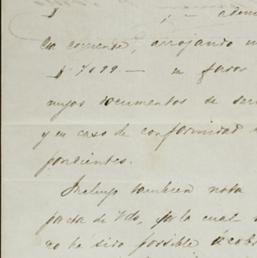 cta corriente, arrojando un
$ 7099 — en favor
cuyos documentos de
y en caso de conformidad
pondientes.
Incluyo tambien nota
de Vds, por la cual
no ha sido possible